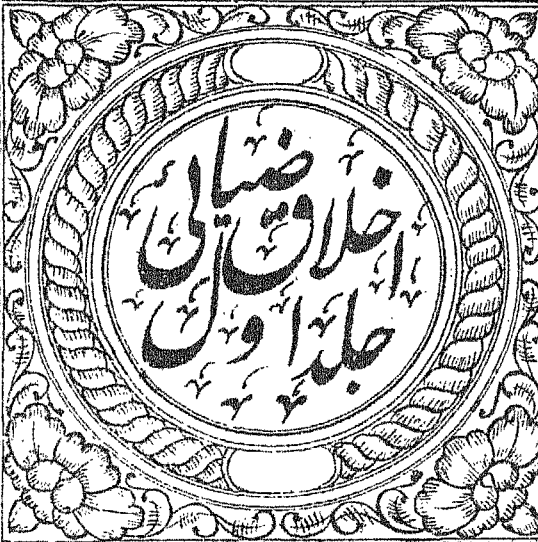 اخلاق ضیائی
جلد اول